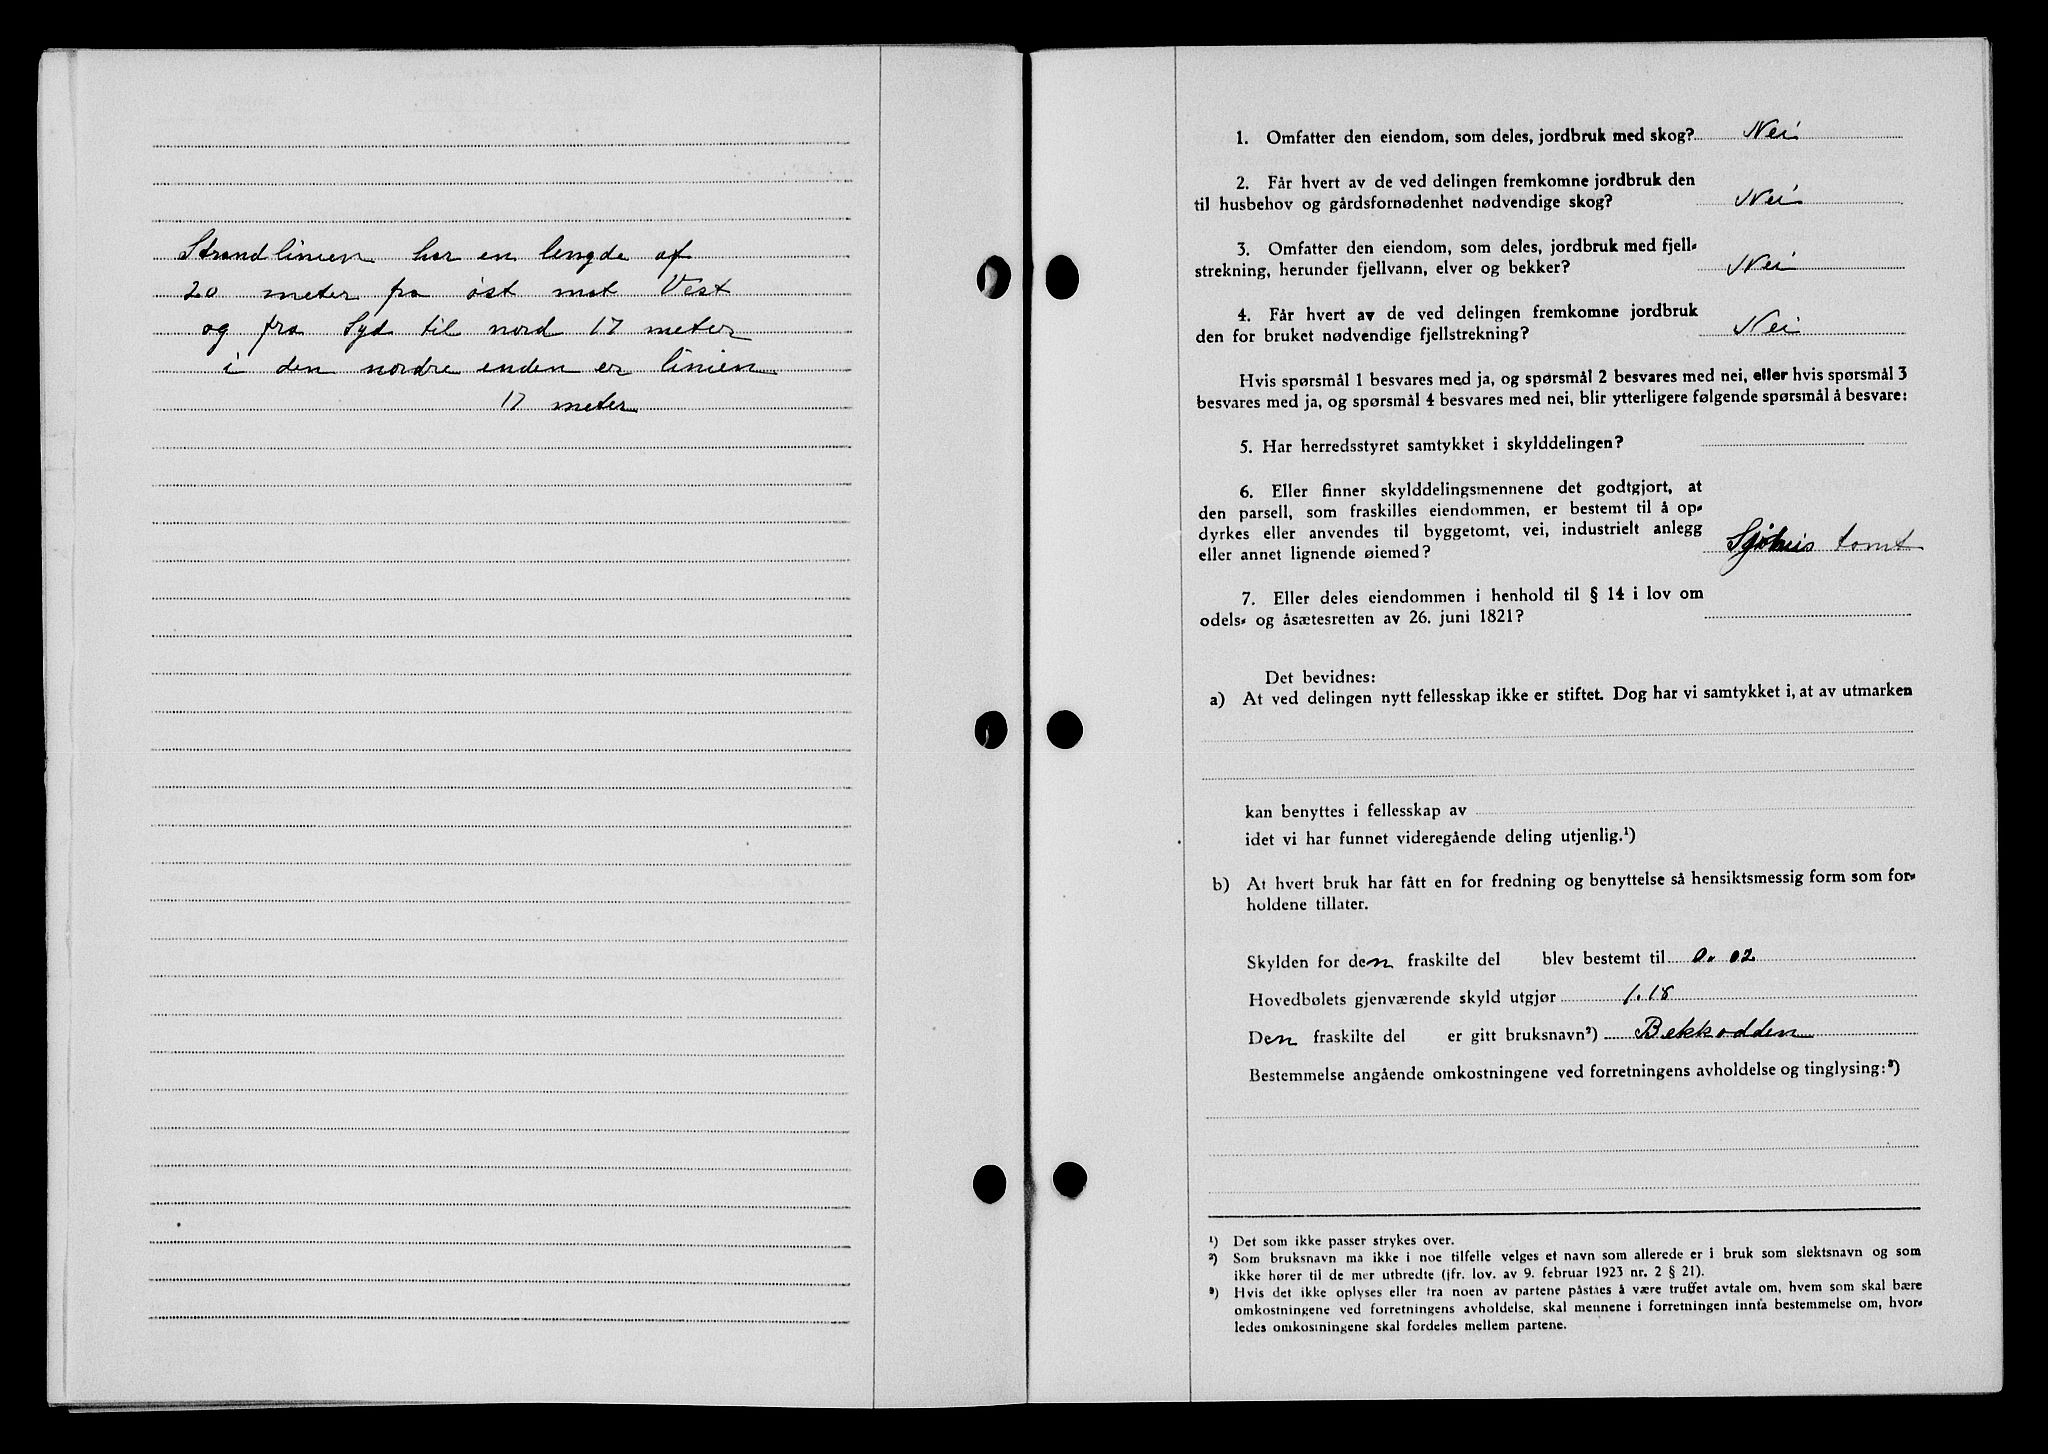 Strandlinien har en lengde af
20 meter fra øst mot Vest
og fra Syd til nord 17 meter
i den nordre enden er linien
17 meter
1. Omfatter den eiendom, som deles, jordbruk med skog? Nei
2. Får hvert av de ved delingen fremkomne jordbruk den
til husbehov og gårdsfornødenhet nødvendige skog? Nei
3. Omfatter den eiendom, som deles, jordbruk med fjell-
strekning, herunder fjellvann, elver og bekker? Nei
4. Får hvert av de ved delingen fremkomne jordbruk
den for bruket nødvendige fjellstrekning? Nei
Hvis spørsmål 1 besvares med ja, og spørsmål 2 besvares med nei, eller hvis spørsmål 3
besvares med ja, og spørsmål 4 besvares med nei, blir ytterligere følgende spørsmål å besvare:
5. Har herredsstyret samtykket i skylddelingen?
6. Eller finner skylddelingsmennene det godtgjort, at
den parsell, som fraskilles eiendommen, er bestemt til å op-
dyrkes eller anvendes til byggetomt, vei, industrielt anlegg
eller annet lignende øiemed? Sjøhus tomt
7. Eller deles eiendommen i henhold til § 14 i lov om
odels- og åsætesretten av 26. juni 1821?
Det bevidnes:
a) At ved delingen nytt fellesskap ikke er stiftet. Dog har vi samtykket i, at av utmarken
kan benyttes i fellesskap av
idet vi har funnet videregående deling utjenlig.¹)
b) At hvert bruk har fått en for fredning og benyttelse så hensiktsmessig form som for-
holdene tillater.
Skylden for den fraskilte del blev bestemt til 0.02
Hovedbølets gjenværende skyld utgjør 1.18
Den fraskilte del er gitt bruksnavn²) Bekkodden
Bestemmelse angående omkostningene ved forretningens avholdelse og tinglysing:³)
¹) Det som ikke passer strykes over.
²) Som bruksnavn må ikke i noe tilfelle velges et navn som allerede er i bruk som slektsnavn og som
ikke hører til de mer utbredte (jfr. lov. av 9. februar 1923 nr. 2 § 21).
³) Hvis det ikke oplyses eller fra noen av partene påståes å være truffet avtale om, hvem som skal bære
omkostningene ved forretningens avholdelse, skal mennene i forretningen innta bestemmelse om, hvor-
ledes omkostningene skal fordeles mellem partene.